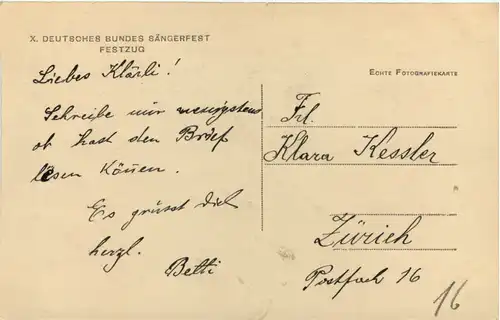 X. DEUTSCHES BUNDES SÄNGERFEST
FESTZUG
ECHTE FOTOGRAFIEKARTE
Liebes Klärli!
Schreibe mir wenigstens
ob hast den Brief
lesen können.
Es grüsst dich
herzl.
Betti
Frl.
Klara Kessler
Zürich
Postfach 16
16